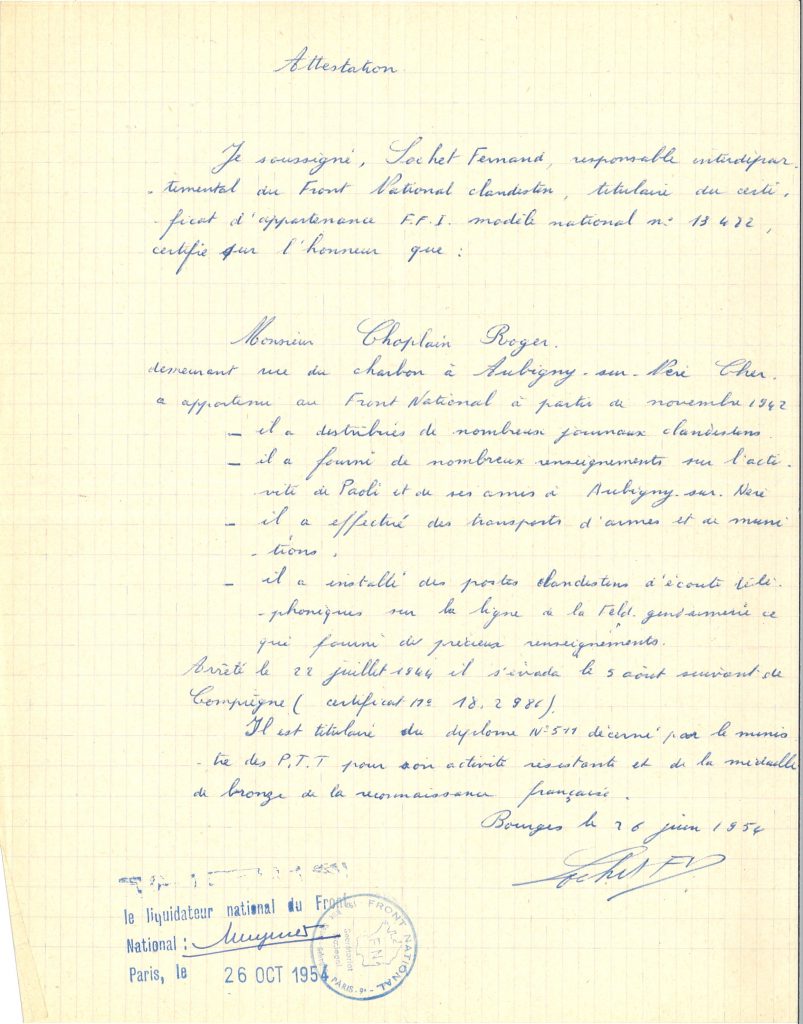 Attestation
Je soussigné, Sochet Fernand, responsable interdépar-
-temental du Front National clandestin, titulaire du certi-
-ficat d'appartenance F.F.I. modèle national n° 13 422,
certifie sur l'honneur que :
Monsieur Choplain Roger.
demeurant rue du charbon à Aubigny-sur-Nère Cher.
a appartenu au Front National à partir de novembre 1942
- il a distribués de nombreux journaux clandestins
- il a fourni de nombreux renseignements sur l'acti-
vité de Paoli et de ses amis à Aubigny-sur-Nère
- il a effectué des transports d'armes et de muni
-tions.
- il a installé des postes clandestins d'écoute télé-
-phoniques sur la ligne de la Feld. gendarmerie ce
qui fourni de précieux renseignements.
Arrêté le 22 juillet 1944 il s'évada le 5 août suivant de
Compiègne ( certificat N° 18.2986).
Il est titulaire du diplome N° 511 décerné par le minis
-tre des P.T.T pour son activité résistante et de la médaille
de bronze de la reconnaissance française.
Bourges le 26 juin 1954
Sochet F
le liquidateur national du Front
National :
Paris, le 26 OCT 1954
FRONT NATIONAL
FN
Secrétariat
PARIS-9e